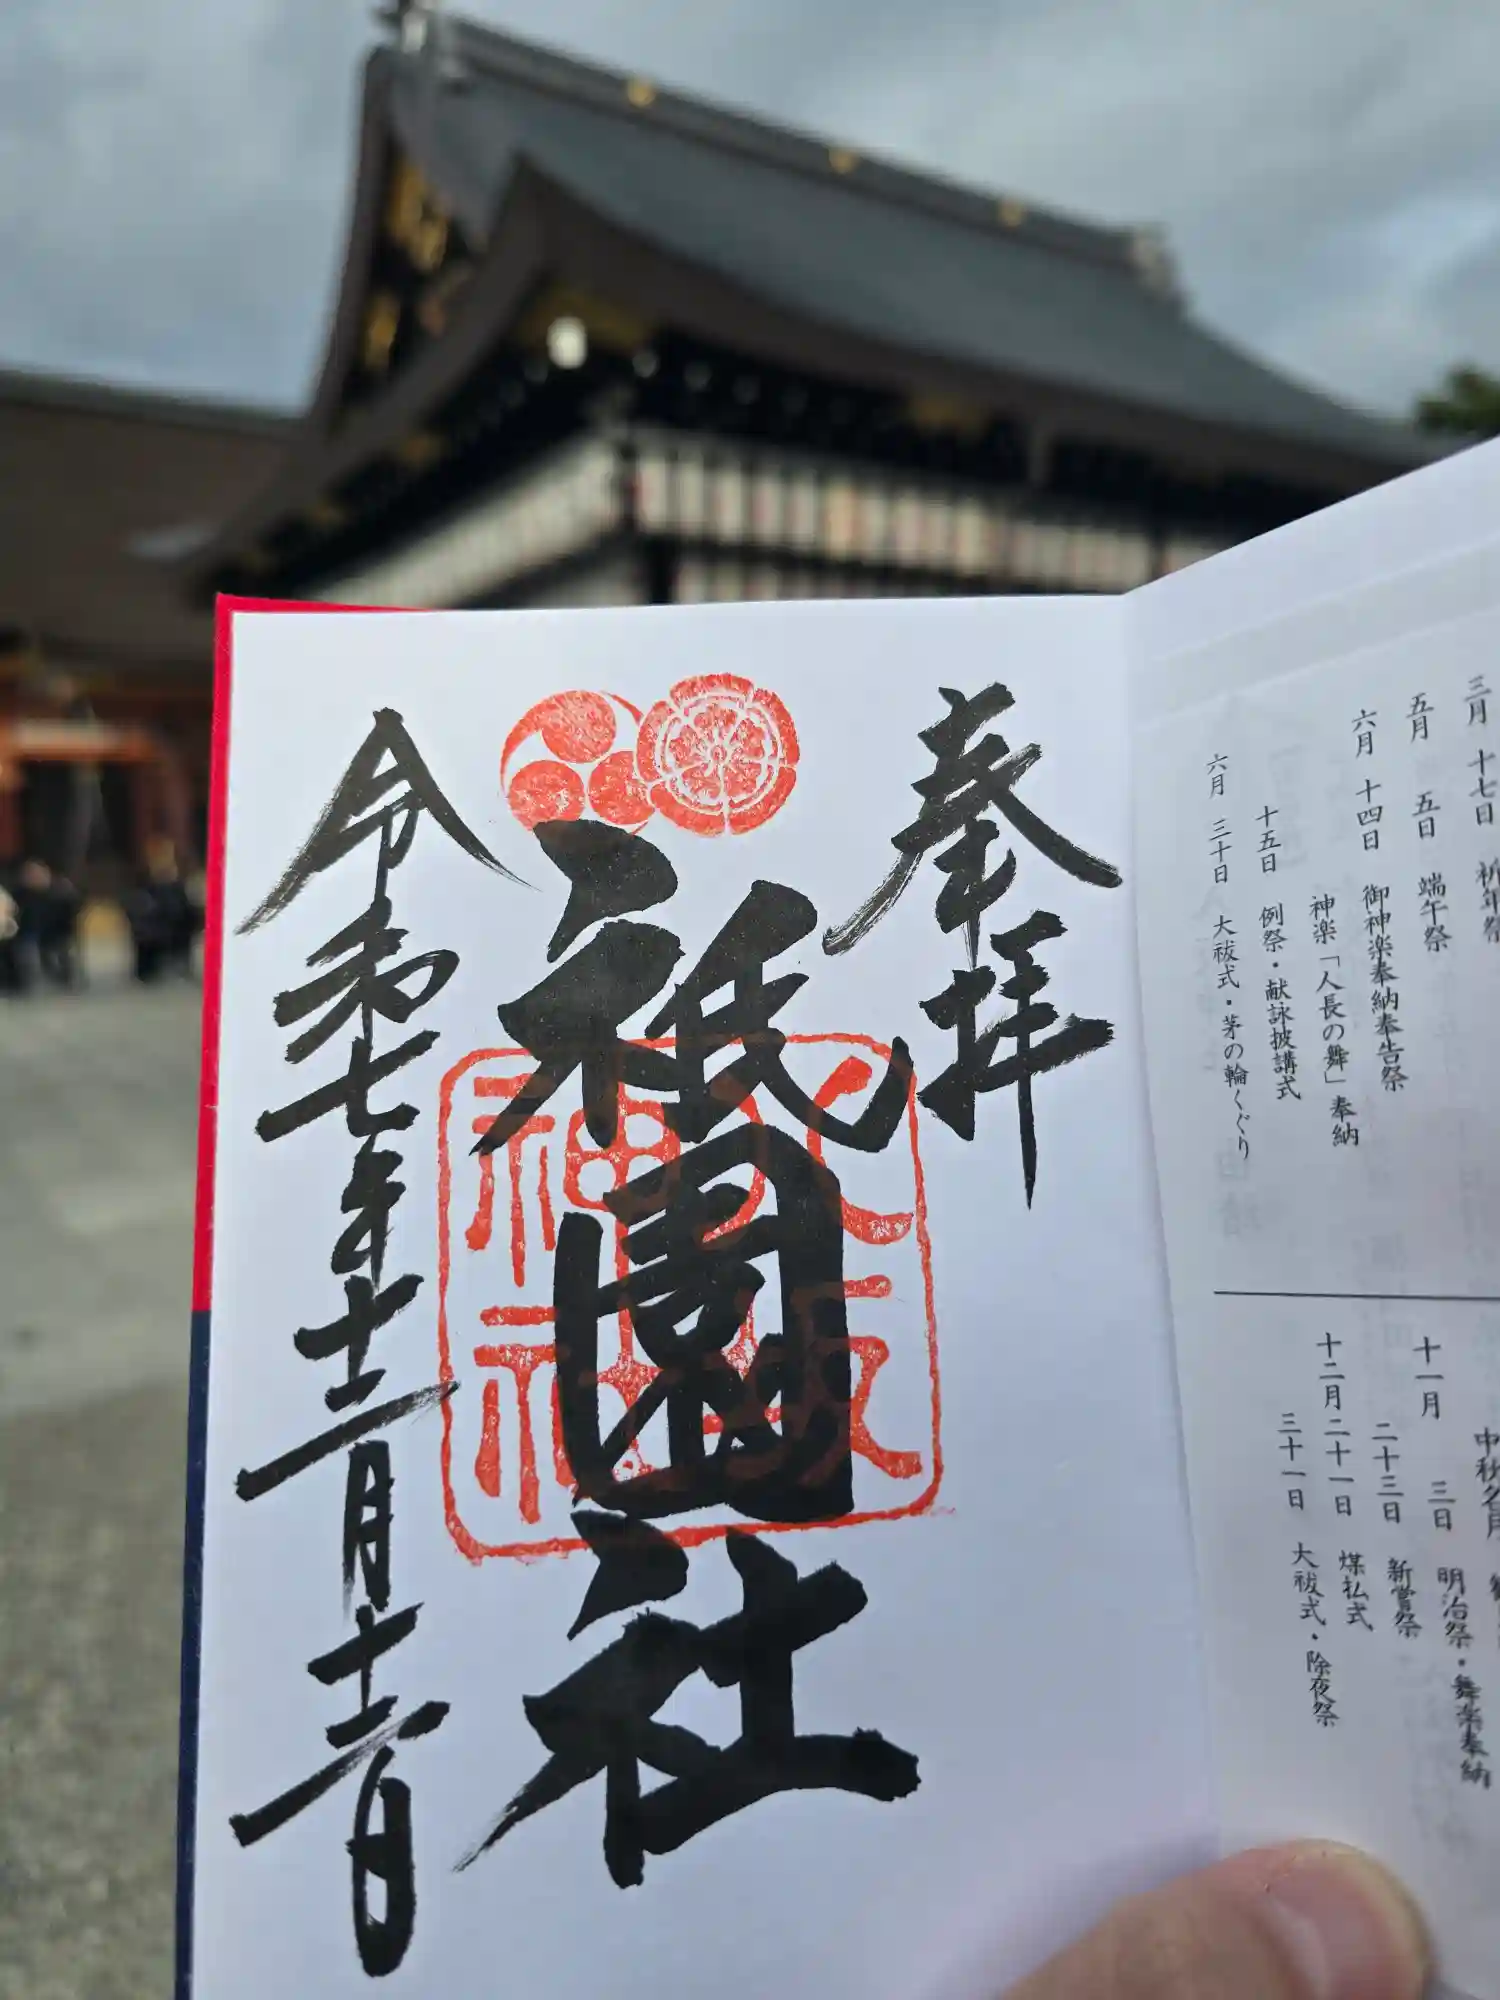 三月 十七日 祈年祭
五月 五日 端午祭
六月 十四日 御神楽奉納奉告祭
神楽「人長の舞」奉納
十五日 例祭・献詠披講式
六月 三十日 大祓式・茅の輪くぐり
中秋名月
十一月 三日 明治祭・舞楽奉納
二十三日 新嘗祭
十二月二十一日 煤払式
三十一日 大祓式・除夜祭
奉拝
祇園社
八坂
神社
令和七年十二月十二日